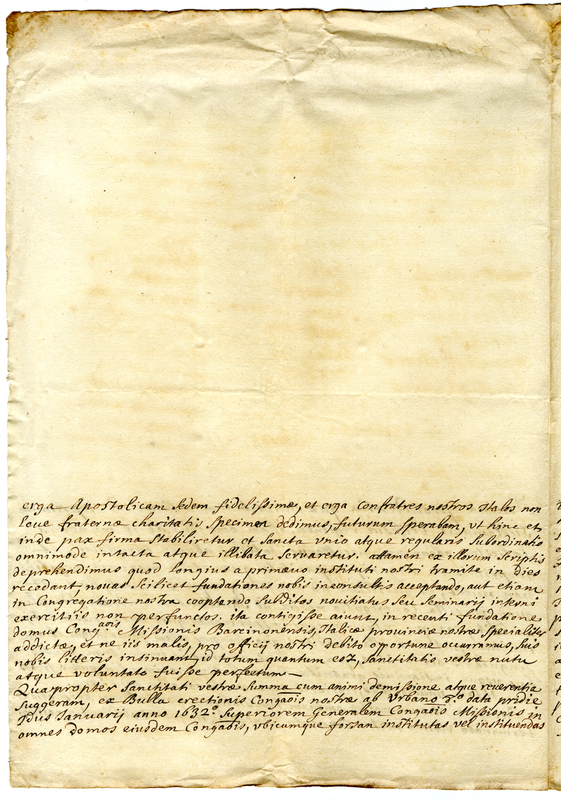 erga Apostolicam Sedem fidelissimæ, et erga confratres nostros Italos non
leve fraternæ charitatis specimen dedimus, futurum sperabam, ut hinc et
inde pax firma stabiliretur et sancta unio atque regularis subordinatio
omnimode intacta atque illibata servaretur. attamen ex illorum scriptis
deprehendimus quod longius a primævo instituti nostri tramite in dies
recedant, novas scilicet fundationes nobis inconsultis acceptando, aut etiam
in Congregatione nostra cooptando subditos novitiatus seu seminarij interni
exercitiis non perfunctos. ita contigisse aiunt, in recenti fundatione
domus Congãois Missionis Barcinonensis, Italicæ provinciæ nostræ specialiter
addictæ, et ne iis malis, pro officij nostri debito oportune occurramus, suis
nobis litteris insinuant, id totum quantum est, Sanctitatis vestræ nutu
atque voluntate fuisse perfectum_
Quapropter Sanctitati vestræ summa cum animi demissione atque reverentia
suggeram, ex Bulla erectionis Congãois nostræ ab Urbano 8º data pridie
Idus Januarij anno 1632º Superiorem Generalem Congãois Missionis in
omnes domos eiusdem Congãois, ubicumque forsan institutas vel instituendas